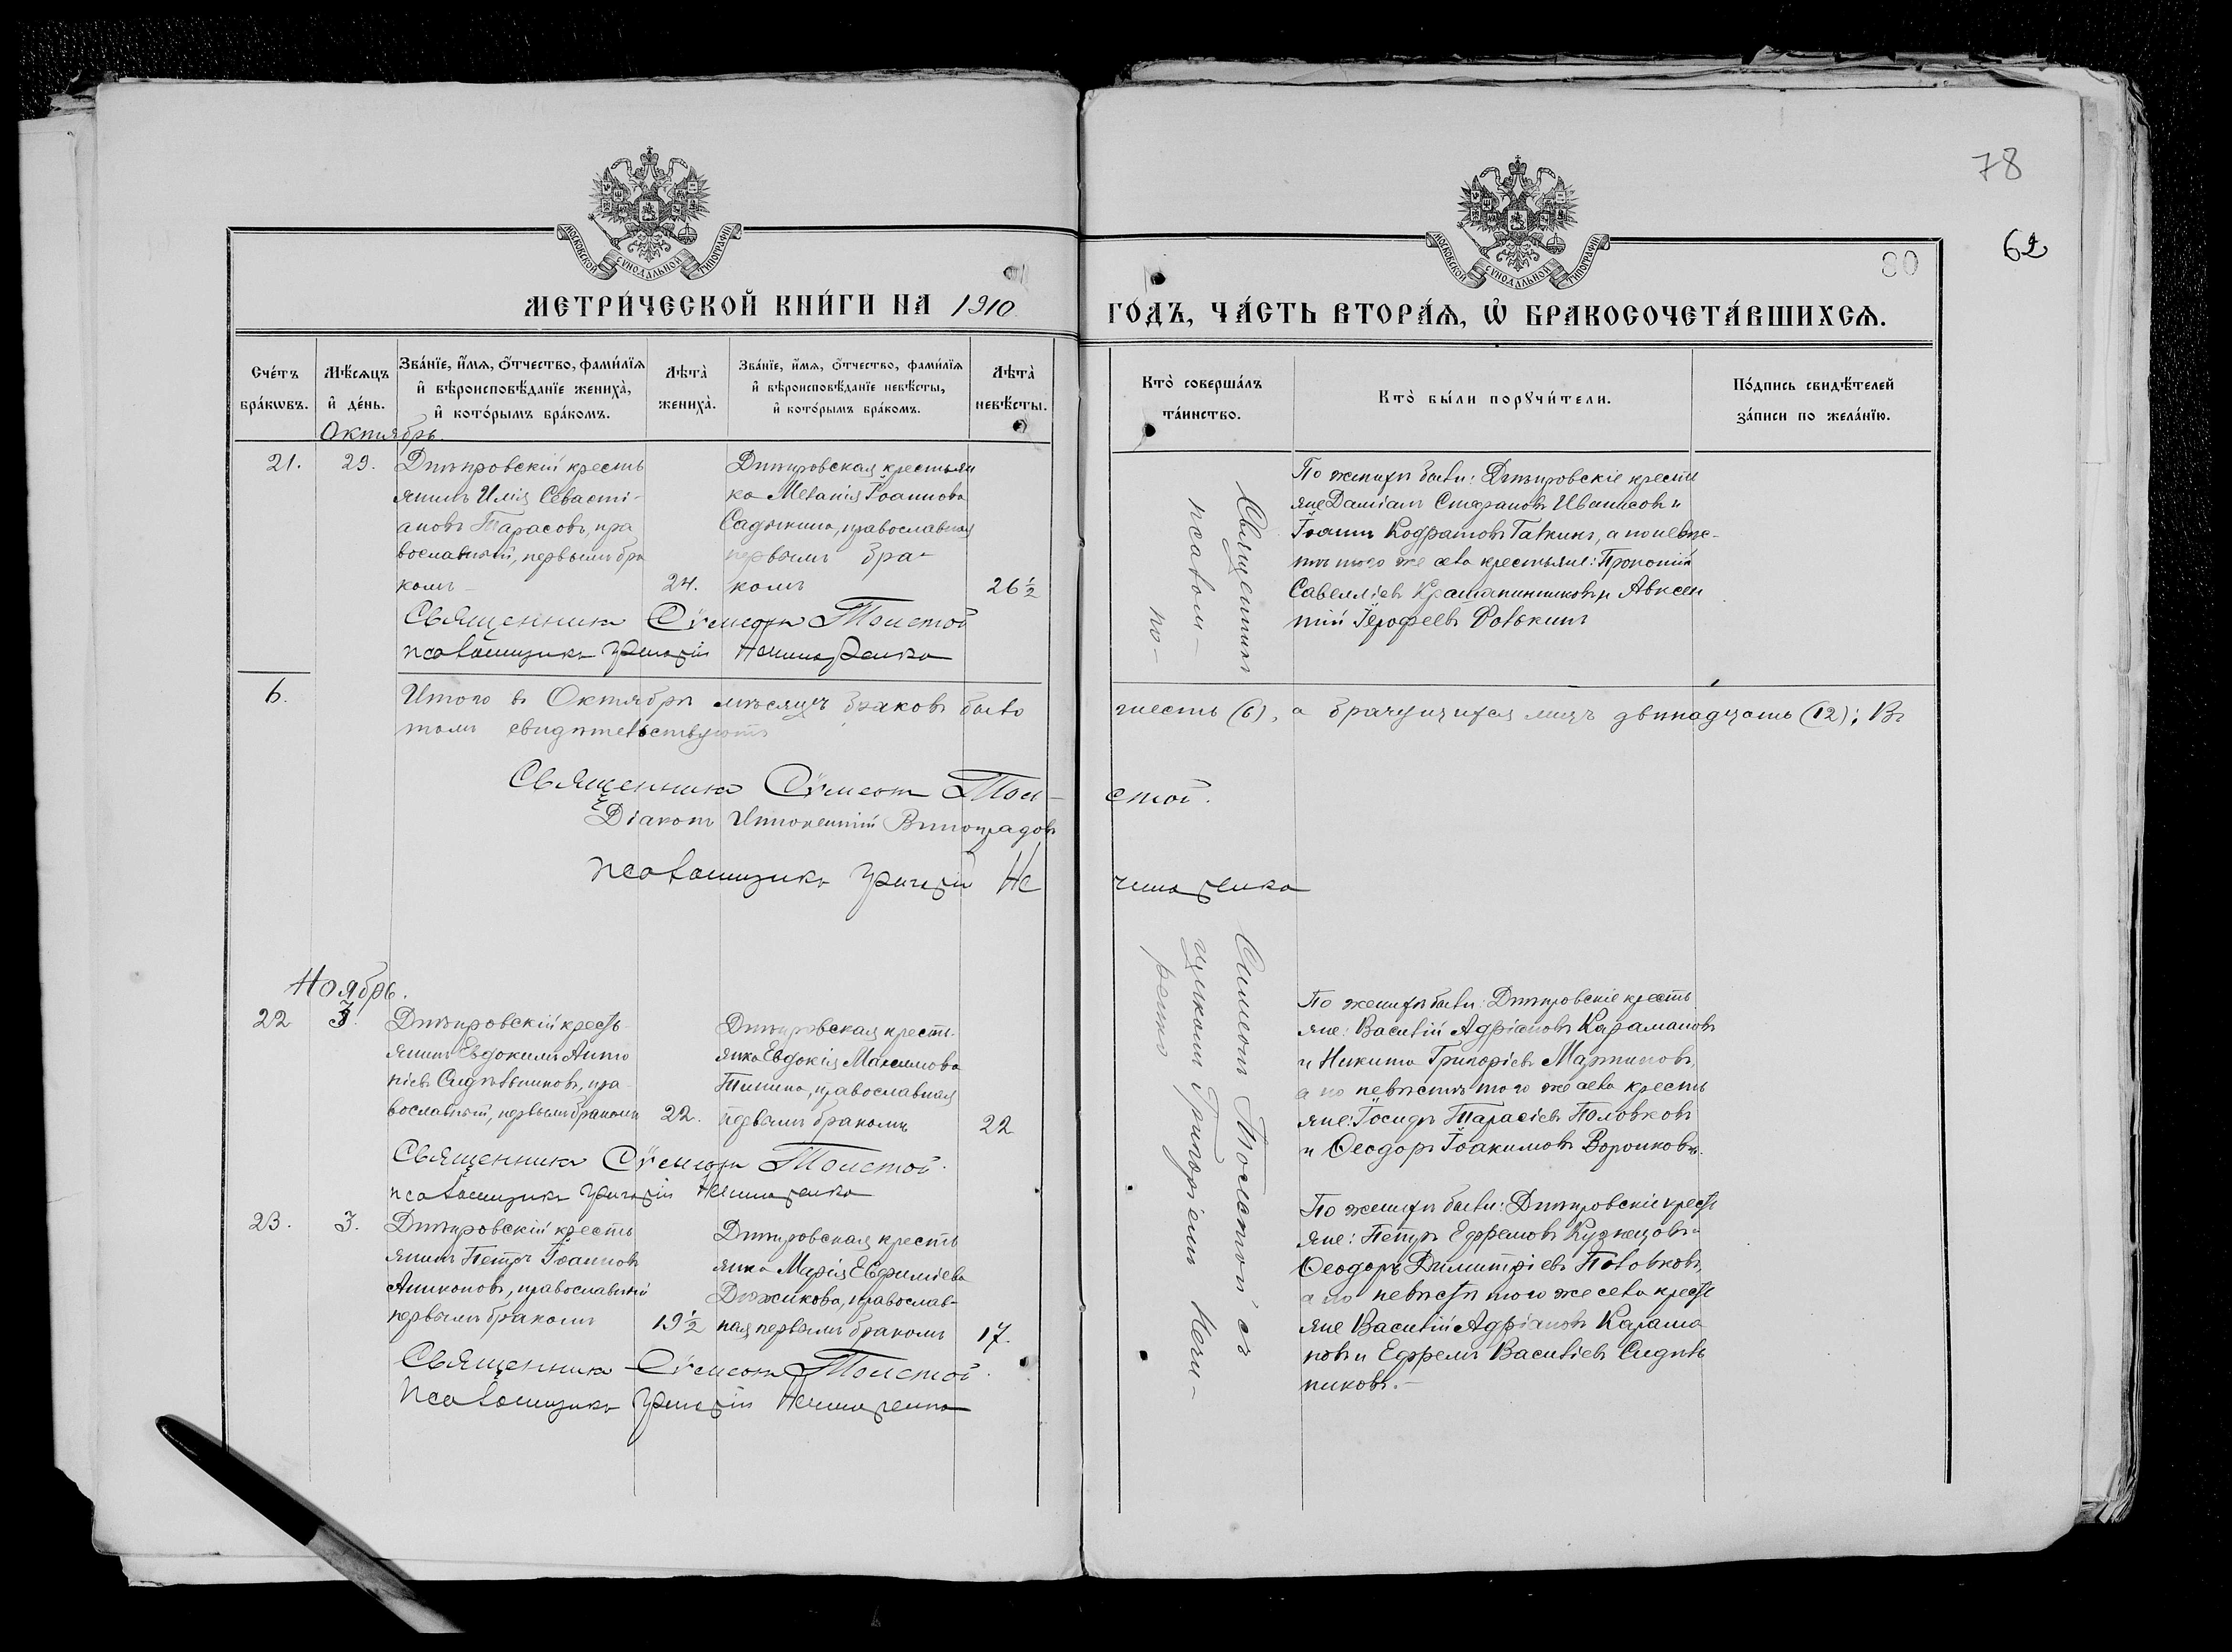 78
62
80
МОСКОВСКОЙ СУНОДАЛЬНОЙ ТИПОГРАФІИ
МОСКОВСКОЙ СУНОДАЛЬНОЙ ТИПОГРАФІИ
МЕТРИ́ЧЕСКОЙ КНИ́ГИ НА 1910
ГО́ДЪ, ЧА́СТЬ ВТОРА́Ѧ, Ѡ҆ БРАКОСОЧЕТА́ВШИХСѦ.
Сче́тъ бра́кѡвъ.
Мѣ́сѧцъ и҆ де́нь.
Зва́нїе, и҆́мѧ, ѻ҆́тчество, фами́лїѧ и҆ вѣроисповѣ́данїе жениха̀, и҆ кото́рымъ бра́комъ.
Лѣта̀ жениха̀.
Зва́нїе, и҆́мѧ, ѻ҆́тчество, фами́лїѧ и҆ вѣроисповѣ́данїе невѣ́сты, и҆ кото́рымъ бра́комъ.
Лѣта̀ невѣ́сты.
Кто̀ соверша́лъ та́инство.
Кто̀ бы́ли порꙋчи́тели.
По́дпись свидѣ́телей за́писи по жела́нїю.
Октябрь.
21.
29.
Дмитровскій кресть
янинъ Илія Севасті-
ановъ Тарасовъ, пра
вославный, первымъ бра
комъ
24.
Дмитровская крестьян
ка Меланія Іоаннова
Садчикина, православная
первымъ бра-
комъ
26 ½
Священникъ
псалом-
По женихѣ были: Дмитровскіе кресть
яне Даміанъ Стефановъ Иванисовъ и
Іоаннъ Кодратовъ Галкинъ, а по невѣс-
тѣ того же села крестьяне: Прокопій
Савелліевъ и Авксен
тій Іерофеевъ
Священникъ Сѵмеонъ Толстой
псаломщикъ Григорій Нечипоренко
6.
Итого въ Октябрѣ мѣсяцѣ браковъ было
шесть (6), а брачущихся лицъ двѣнадцать (12); Въ
томъ свидѣтельствуютъ
Священникъ Сѵмеонъ Тол-
стой.
Діаконъ Иннокентій Виноградовъ
псаломщикъ Григорій Не
чипоренко
Ноябрь.
22
3.
Дмитровскій кресть
янинъ Евдокимъ Анто
ніевъ Сидѣльниковъ, пра
вославный, первымъ бракомъ
22.
Дмитровская кресть
янка Евдокія Максимова
Тинина, православная
первымъ бракомъ
22
Симеонъ Толстой съ
щикомъ Григоріемъ Нечи-
ренко
По женихѣ были: Дмитровскіе кресть
яне: Василій Адріановъ Карамановъ
и Никита Григоріевъ Мартиновъ,
а по невѣстѣ того же села кресть
яне: Іосифъ Тарасіевъ Половковъ
и Ѳеодоръ Іоакимовъ Воронковъ.
Священникъ Сѵмеонъ Толстой.
псаломщикъ Григорій Нечипоренко
23.
3.
Дмитровскій кресть
янинъ Петръ Іоанновъ
Антоновъ, православный
первымъ бракомъ
19½
Дмитровская кресть
янка Марія Евфиміева
Дюжикова, православ-
ная первымъ бракомъ
17.
По женихѣ были: Дмитровскіе кресть
яне: Петръ Ефремовъ Кузнецовъ и
Ѳеодоръ Димитріевъ Половковъ,
а по невѣстѣ того же села кресть
яне Василій Адріановъ Карама
новъ и Ефремъ Василіевъ Сидѣль
никовъ.
Священникъ Сѵмеонъ Толстой.
Псаломщикъ Григорій Нечипоренко